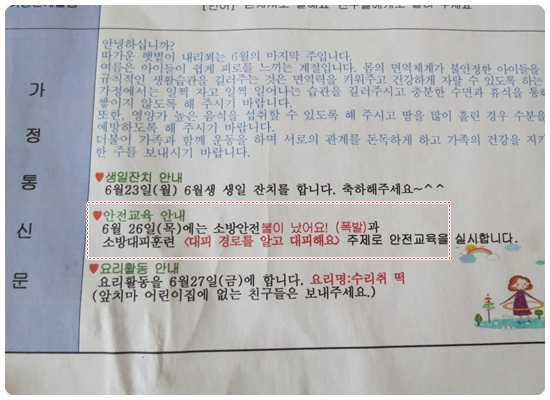 안녕하십니까?
따가운 햇볕이 내리쬐는 6월의 마지막 주입니다.
여름은 아이들이 쉽게 피로를 느끼는 계절입니다. 몸의 면역체계가 불안정한 아이들을
규칙적인 생활습관을 길러주는 것은 면역력을 키워주고 건강하게 자랄 수 있도록 하는
가정에서는 일찍 자고 일찍 일어나는 습관을 길러주시고 충분한 수면과 휴식을 통해
쌓이지 않도록 해 주시기 바랍니다.
또한, 영양가 높은 음식을 섭취할 수 있도록 해 주시고 땀을 많이 흘린 경우 수분을
예방하도록 해 주시기 바랍니다.
더불어 가족과 함께 운동을 하며 서로의 관계를 돈독하게 하고 가족의 건강을 지키
한 주를 보내시기 바랍니다.
가정통신문
♥생일잔치 안내
6월23일(월) 6월생 생일 잔치를 합니다. 축하해주세요~^^
♥안전교육 안내
6월 26일(목)에는 소방안전불이 났어요! (폭발)과
소방대피훈련 <대피 경로를 알고 대피해요> 주제로 안전교육을 실시합니다.
♥요리활동 안내
요리활동을 6월27일(금)에 합니다. 요리명:수리취 떡
(앞치마 어린이집에 없는 친구들은 보내주세요.)